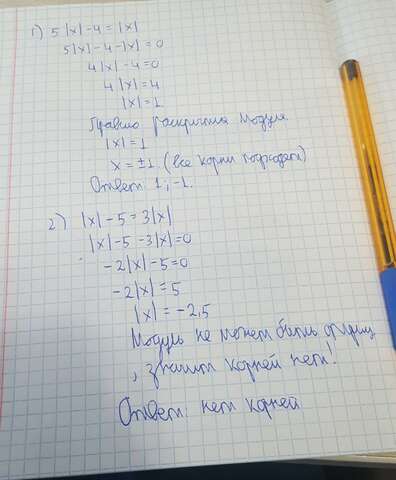 1) 5|x|-4=|x|
5|x|-4-|x|=0
4|x|-4=0
4|x|=4
|x|=1
Правило раскрытия модуля
|x|=1
x=±1 (все корни подходят)
Ответ 1; -1.
2) |x|-5=3|x|
|x|-5-3|x|=0
-2|x|-5=0
-2|x|=5
|x|=-2,5
Модуль не может быть
, значит корней нет!
Ответ: нет корней